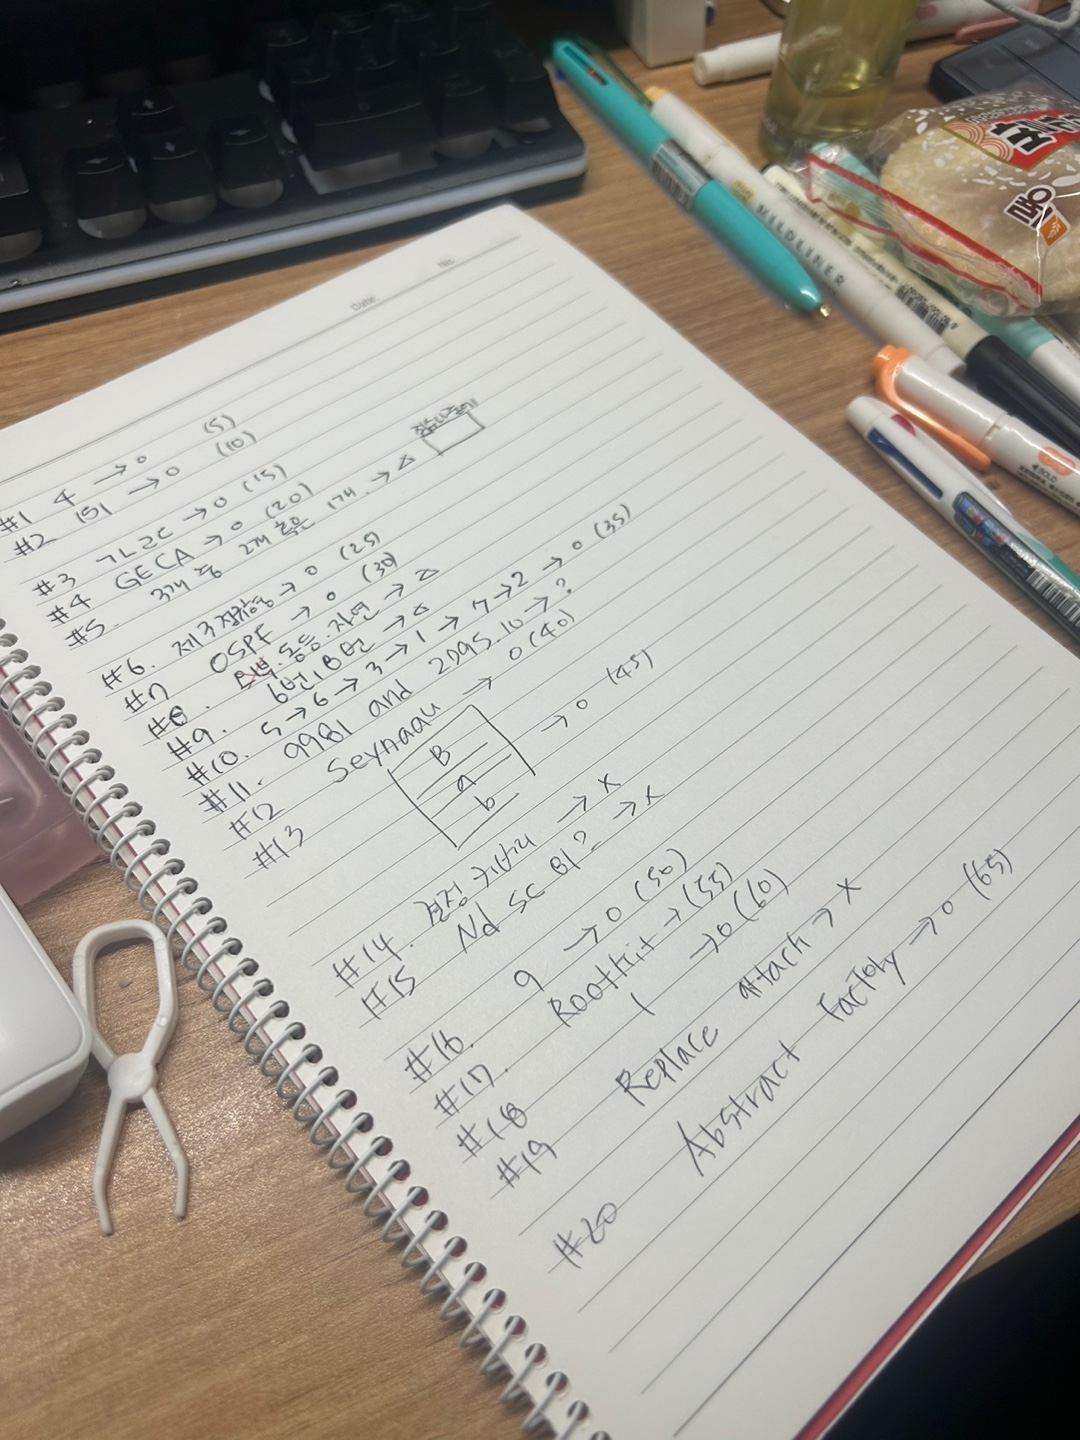 Date.
No.
#1 4 → 0 (5)
#2 151 → 0 (10)
#3 ㄱㄴㄹㄷ → 0 (15)
#4 GECA → 0 (20)
#5. 3개 중 2개 혹은 1개. → △
#6. 제3정규형 → 0 (25)
#7 OSPF → 0 (30)
#8. 동등. 자연 → △
#9. 6번, 18번 → △
#10. 5 → 6 → 3 → 1 → 7 → 2 → 0 (35)
#11. 9981 and 2095.10 → ?
#12 Seynaau → 0 (40)
#13 B
a
b
→ 0 (45)
#14. 결정 커버리 → x
#15 Nd SC 81? → x
#16. 9 → 0 (50)
#17. Rootkit → (55)
#18 1 → 0 (60)
#19 Replace attach → x
#20 Abstract Factory → 0 (65)
WILDLINER